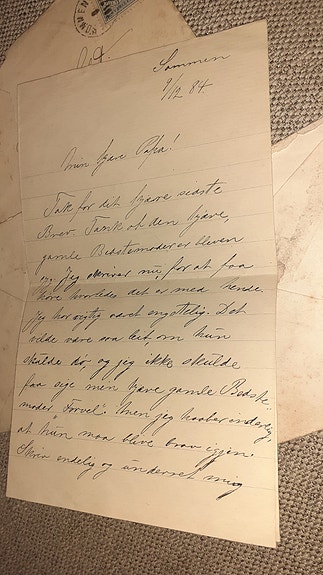 Sommen
9/12 84.
Min kjære Papa!
Tak for dit kjære sidste
Brev. Tænk at den kjære,
gamle Bedstemoder er bleven
syg. Jeg skriver nu, for at faa
höre hvorledes det er med hende.
Jeg har rigtig vært engstelig. Det
vilde være saa leit, om hun
skulde dø, og jeg ikke skulde
faa sige min kjære gamle Bedste-
moder Farvel. Men jeg haaber inderlig,
at hun maa blive brav igjen.
Skriv endelig og underret mig